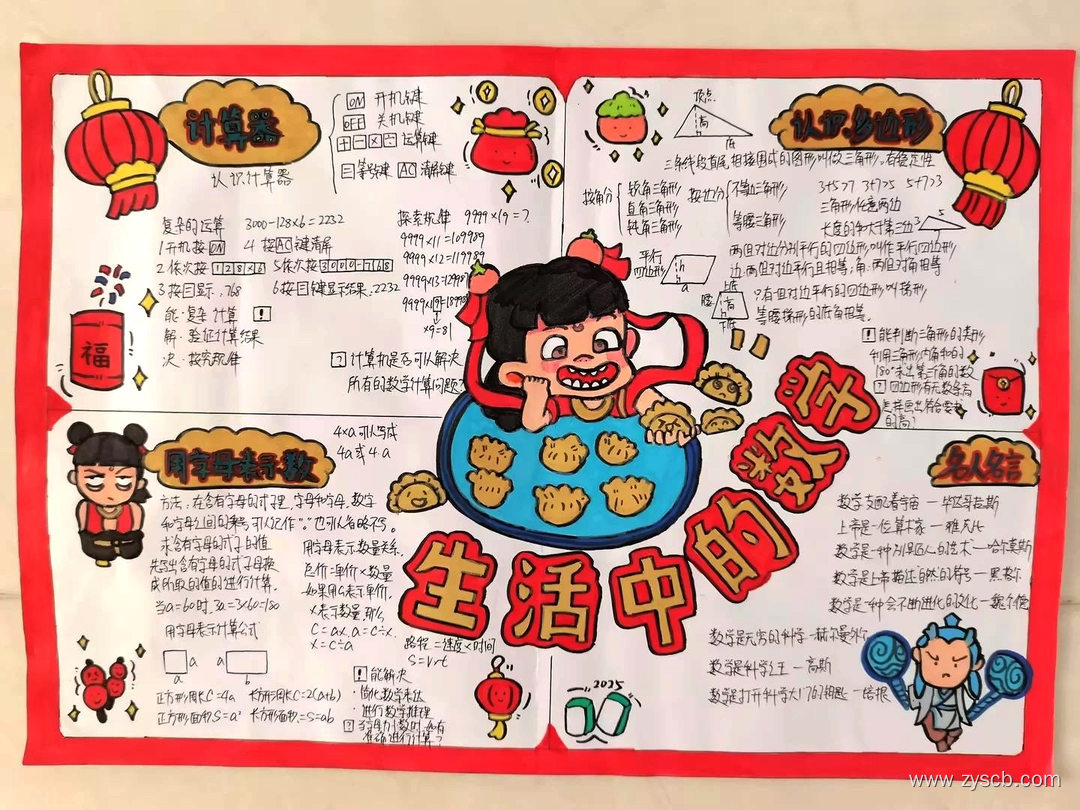 计算器
认识计算器
ON 开机键
OFF 关机键
+ - × ÷ 运算键
= 等号键 AC 清除键
复杂的运算 3000-128×6=2232
1 开机按 ON 4 按 AC 键清屏
2 依次按 128×6 5 依次按 3000-768
3 按=显示,768 6 按=键显示结果,2232
能·复杂计算 !
解·验证计算结果
决·探究规律
探索规律 9999×19=?
9999×11=109989
9999×12=119988
9999×13=129987
×9=81
? 计算机是否可以解决
所有的数学计算问题?
福
认识多边形
顶点
高
底
三条线段首尾相接围成的图形叫做三角形,有稳定性
按角分
锐角三角形
直角三角形
钝角三角形
按边分
不等边三角形
等腰三角形
3+5>7 3+7>5 5+7>3
三角形任意两边
长度的和大于第三边
3 5
平行
四边形
h
a
两组对边分别平行的四边形叫作平行四边形
边:两组对边平行且相等;角:两组对角相等
上底
腰
高
下底
只有一组对边平行的四边形叫梯形
等腰梯形的底角相等.
! 能判断三角形的类形
利用三角形内角和的
180°求出第三个角的数
? 四边形有无数条高
怎样画出符合要求
的高?
用字母表示数
4×a可以写成
4a或4·a
方法:在含有字母的式子里,字母和字母,数字
和字母之间的乘号,可以记作“.”也可以省略不写。
求含有字母的式子的值
先写出含有字母的式子,再按
成所取的值的进行计算.
当a=60时,3a=3×60=180
用字母表示计算公式
a
a
b
正方形周长C=4a 长方形周长C=2(a+b)
正方形面积S=a² 长方形面积:S=ab
用字母表示数量关系.
总价=单价×数量
如果用a表示单价,
x表示数量,那么
C=ax,a=C÷x.
x=C÷a
路程=速度×时间
S=v×t
! 能解决
·简化数学表达
·进行数学推理
生活中的数学
2025
名人名言
数学支配着宇宙 — 毕达哥拉斯
上帝是一位算术家 — 雅克比
数学是一种别具匠人的艺术 — 哈尔莫斯
数学是上帝描述自然的符号 — 黑格尔
数学是一种会不断进化的文化 — 魏尔德
数学是无穷的科学 — 赫尔曼外尔
数学是科学之王 — 高斯
数学是打开科学大门的钥匙 — 培根
www.zyscb.com